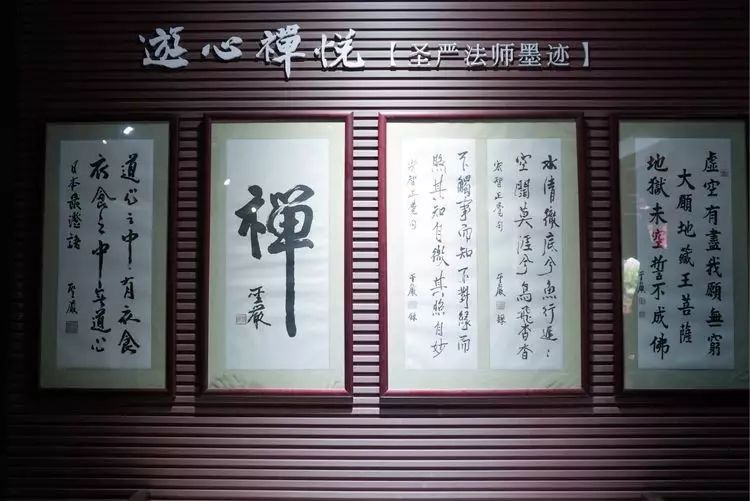 遊心禪悅【圣严法师墨迹】
道心之中有衣食
衣食之中無道心
日本最澄語
聖嚴
禪
聖嚴
水清徹底兮魚行遲〻
空闊莫涯兮鳥飛杳杳
宏智正覺句
聖嚴 錄
不觸事而知不對緣而
照其知自微其照自妙
宏智正覺句
聖嚴 錄
虛空有盡我願無窮
大願地藏王菩薩
地獄未空誓不成佛